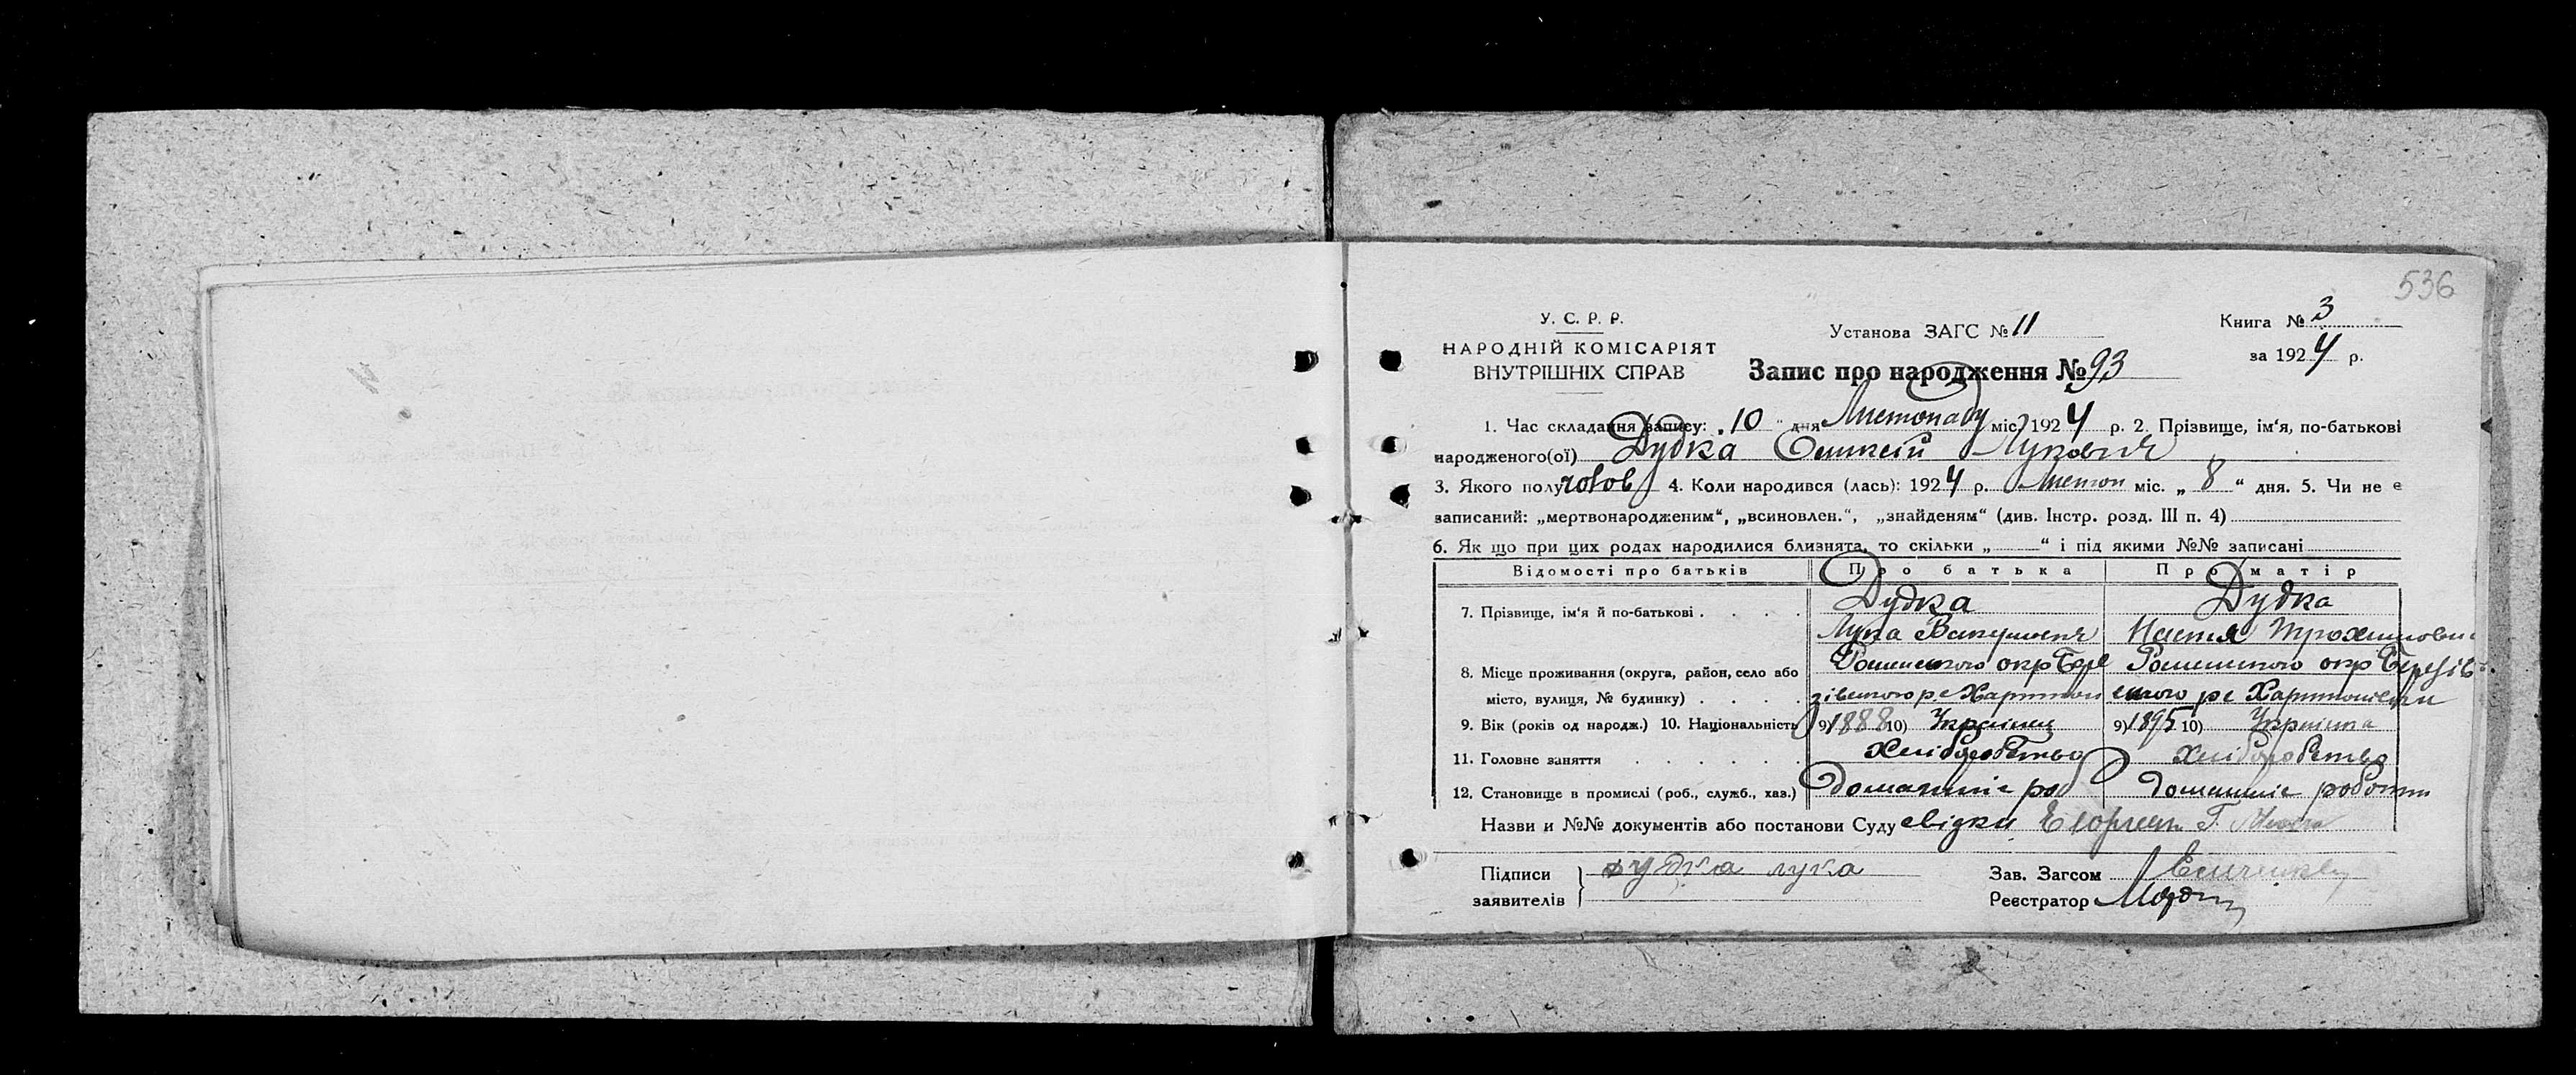 536
У. С. Р. Р.
НАРОДНІЙ КОМІСАРІЯТ
ВНУТРІШНІХ СПРАВ
Установа ЗАГС № 11
Книга № 3
за 1924 р.
Запис про народження № 93
1. Час складання запису: „10" дня Листопаду міс. 1924 р. 2. Прізвище, ім‘я, по-батькові
народженого(ої) Дудка Олексій Лукович
3. Якого полу чолов 4. Коли народився (лась): 1924 р. Листоп міс. „ 8 “ дня. 5. Чи не є
записаний: „мертвонародженим“, „всиновлен.“, „знайденям“ (див. Інстр. розд. III п. 4)
6. Як що при цих родах народилися близнята, то скільки „ “ і під якими №№ записані
Відомості про батьків Про батька Про матір
7. Прізвище, ім‘я й по-батькові . . . . Дудка Дудка
Лука Вакулович Настя Трохимовн
8. Місце проживання (округа, район, село або Роменського окр Бере Роменського окр Березів
місто, вулиця, № будинку) . . . . зівського ре ського ре
9. Вік (років од народж.) 10. Національність 9) 1888 10) Українец 9) 1895 10) Українка
11. Головне заняття . . . . . . Хліборобство Хліборобство
12. Становище в промислі (роб., служб., хаз.) домашніе роб домашніе роботи
Назви и №№ документів або постанови Суду свідки
Підписи
заявителів
дудка лука
Зав. Загсом
Реєстратор